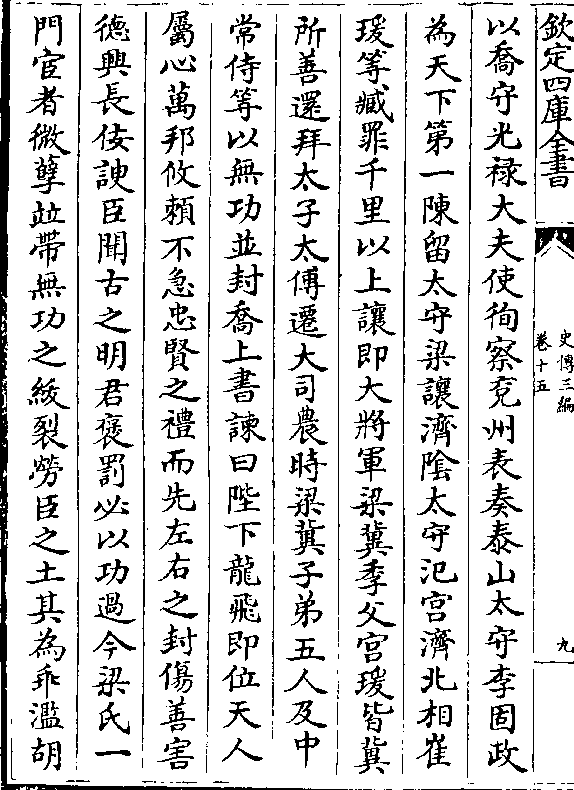 欽定四庫全書
史傳三編
卷十五
九
以喬守光禄大夫使徇察兖州表奏泰山太守李固政
為天下第一陳留太守梁讓濟陰太守汜宫濟北相崔
瑗等臧罪千里以上讓即大將軍梁冀季父宫瑗皆冀
所善還拜太子太傅遷大司農時梁冀子弟五人及中
常侍等以無功並封喬上書諫曰陛下龍飛即位天人
屬心萬邦攸賴不急忠賢之禮而先左右之封傷善害
德興長佞諛臣聞古之明君褒罰必以功過今梁氏一
門宦者微孽竝帶無功之紱裂勞臣之土其為乖濫胡